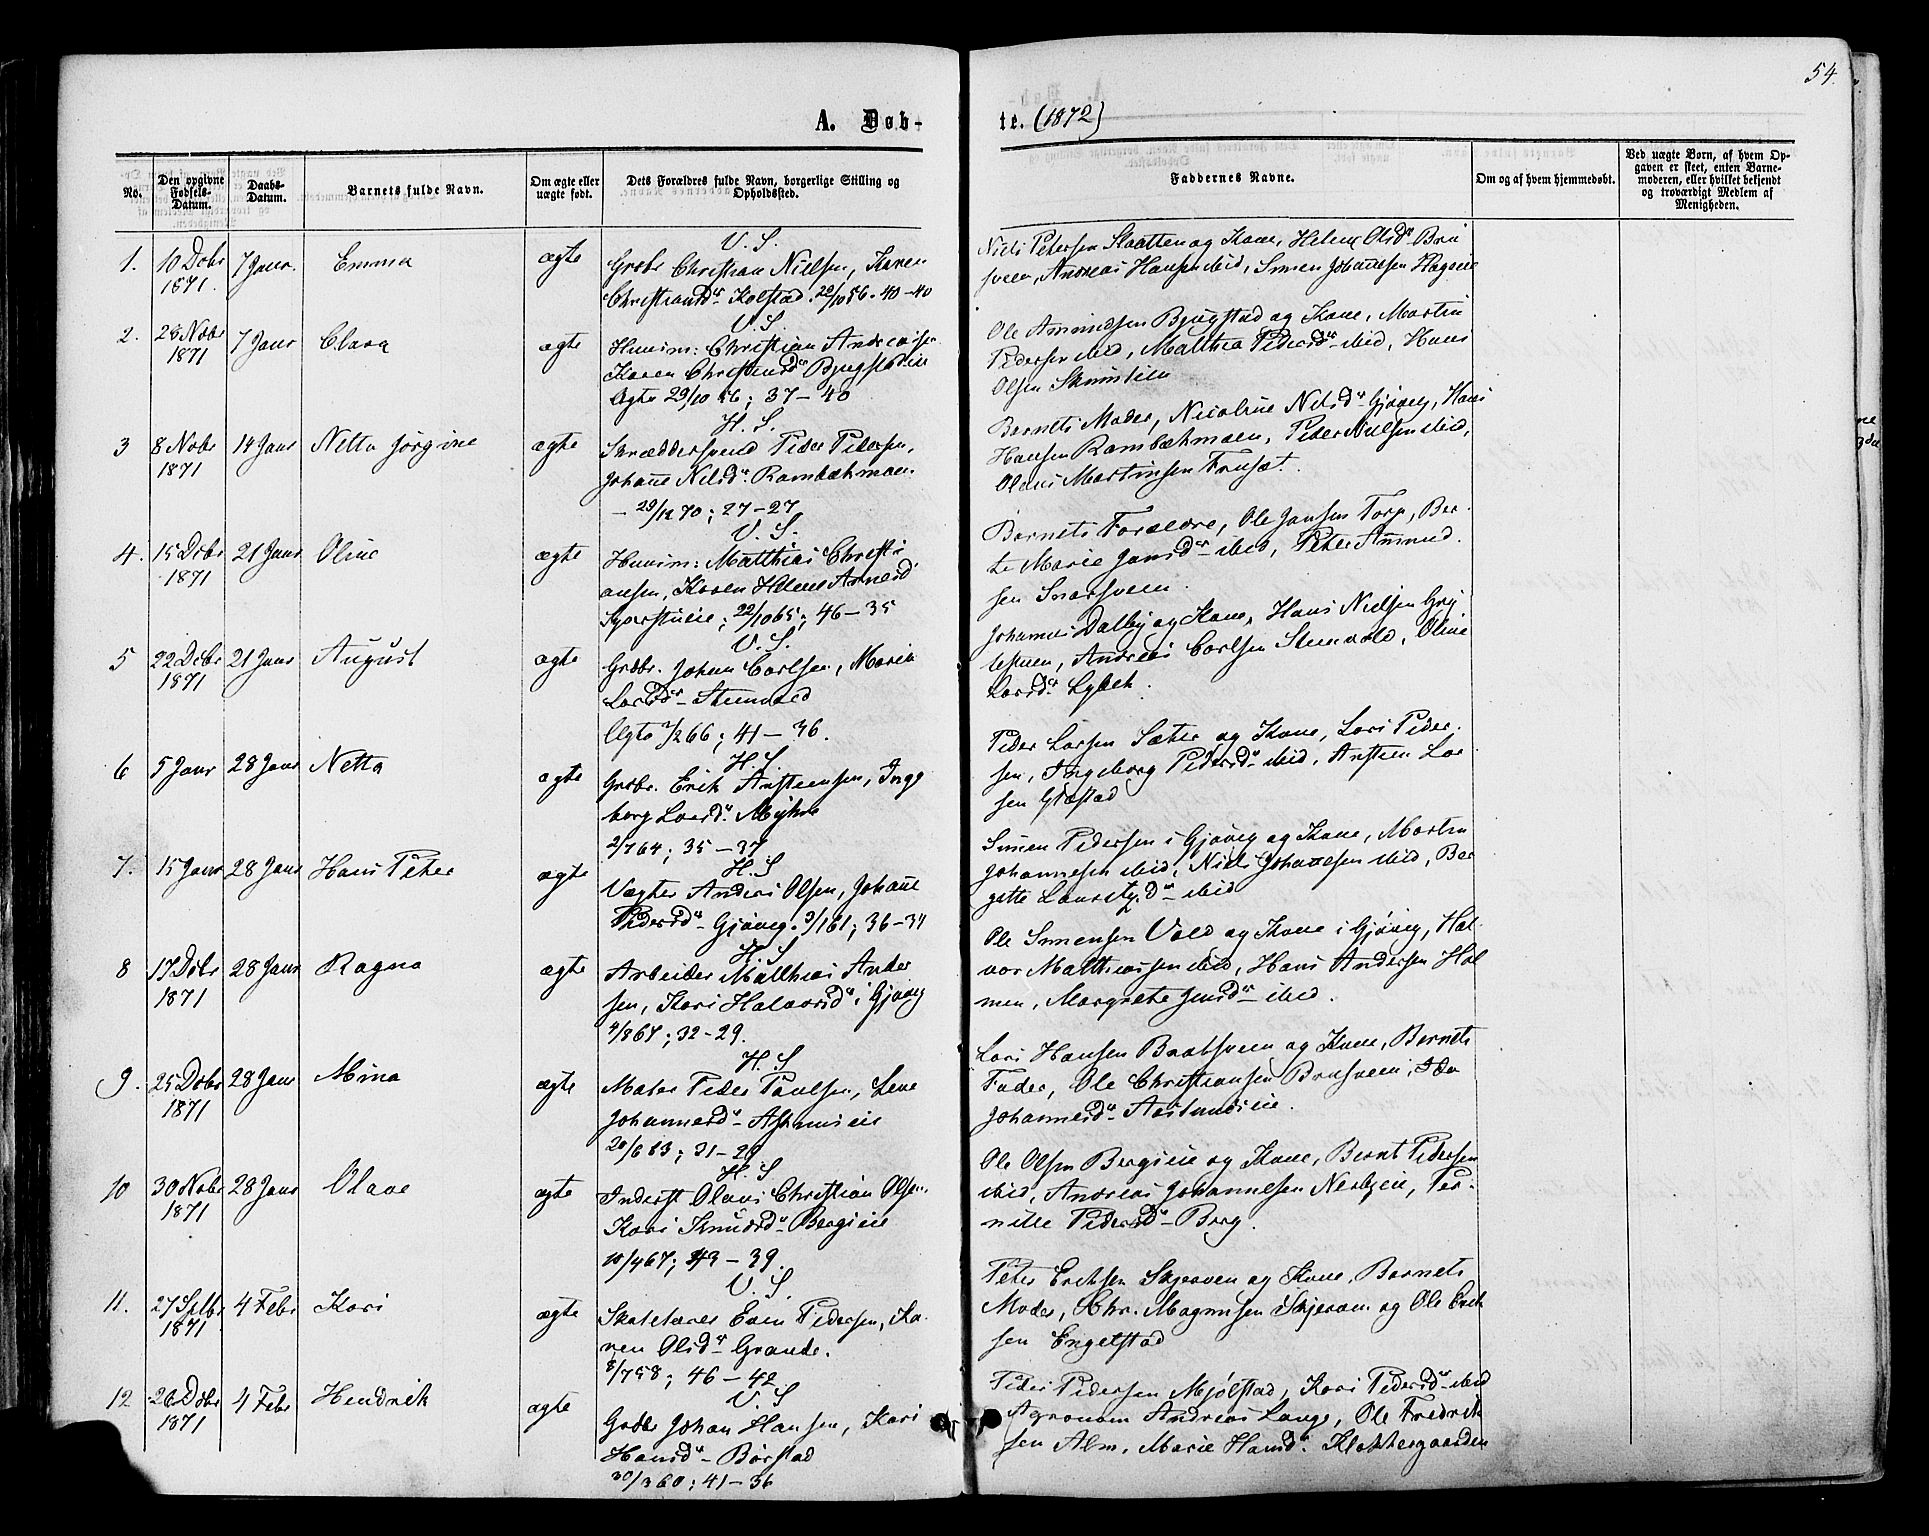 54.
A. Døb-
te. (1872)
No.
Den opgivne Fødsels-Datum.
Daabs-Datum.
Barnets fulde Navn.
Om ægte eller uægte født.
Dets Forældres fulde Navn, borgerlige Stilling og Opholdssted.
Faddernes Navne.
Om og af hvem hjemmedøbt.
Ved uægte Børn, af hvem Opgaven er skeet, enten Barnemoderen, eller hvilket bekjendt og troværdigt Medlem af Menigheden.
1. 10 Dcbr 1871. 7 Janr. Emma ægte
V. S.
Grdbr Christian Nielsen, Karen
Christiansdr Kolstad. 29/10 56. 40-40
Niels Petersen Slaatten og Kone, Helene Olsdr Bra
sveen, Andreas Hansen ibid, Simen Johannesen Hageeie
2. 28 Nobr 1871 7 Janr Clara ægte
V. S.
Huusm: Christian Andreassen
Karen Christiansdr Bjugstadeie
Ægte 29/10 56; 37-40
Ole Amundsen Bjugstad og Kone, Martin
Pedersen ibid, Mathea Pedersdr ibid, Hans
Olsen
3 8 Nobr 1871 14 Janr Netta Jørgine ægte
H. S.
Skræddersvend Peder Petersen,
Johanne Nilsdr Rambækmoen
- 29/12 70; 27-27
Barnets Moder, Nicoline Nilsdr Gjøvig, Hans
Hansen Rambækmoen, Peter Nielsen ibid,
Olaus Martinsen Frusæt.
4. 15 Dcbr 1871 21 Janr Oline ægte
V. S.
Huusm: Matthias Christi
ansen, Karen Helene Arnesd
22/10 65; 46-35
Barnets Forældre, Ole Jansen Torp, Ber
te Marie Jansdr ibid, Peter Amund
sen Snarsveen.
5 22 Dcbr 1871 21 Janr August ægte
V. S.
Grdbr. Johan Carlsen, Maria
Larsdr Steenvold
Ægte 7/2 66; 41-36.
Johannes Dalby og Kone, Hans Nielsen Gry
testuen, Andreas Carlsen Steenvold, Oline
Larsdr
6 5 Janr 28 Janr Netta ægte
H. S.
Grdbr. Erik Anstensen, Inge
borg Larsdr. Myhre
2/7 64; 35-37
Peder Larsen Sæter og Kone, Lars Peder
sen, Ingeborg Pedersdr ibid, Ansten Lar
sen Glæstad
7. 15 Janr 28 Janr Hans Peter ægte
H. S
Vægter Anders Olsen, Johanne
Pedersdr Gjøvig. 3/1 61; 36-34
Simen Pedersen i Gjøvig og Kone, Martin
Johannesen ibid, Niels Johannesen ibid, Ber
gette Lauritz.dr ibid
8 17 Dcbr 1871 28 Janr Ragna ægte
H. S
Arbeider Matthias Ander
sen, Kari Halvorsdr i Gjøvig
4/8 67; 32-29.
Ole Simensen Vold og Kone i Gjøvig, Hal
vor Matthiassen ibid, Hans Andersen Hol
men, Margrete Jensdr ibid.
9. 25 Dcbr 1871 28 Janr Mina ægte
H. S
Maler Peder Paulsen, Lene
Johannesdr
20/6 63; 31-29
Lars Hansen Bratsveen og Kone, Barnets
Fader, Ole Christiansen Brusveen, Ida
Johannesdr
10 30 Nobr 1871 28 Janr Olave ægte
H. S
Inderst Olaus Christian Olsen,
Kari Knudsdr Bergseie
10/4 67; 43-39.
Ole Olsen Bergseie og Kone, Bernt Pedersen
ibid, Andreas Johannesen Nesbyeie, Per
nille Pedersdr Berg.
11. 27 Septbr 1871 4 Febr Kari ægte
V. S.
Skolelærer Even Pedersen, Ka
ren Olsdr Grande.
8/7 58; 46-42
Peter Eriksen Skjerven og Kone, Barnets
Moder, Chr. Magnusen Skjerven og Ole Erik
sen Engelstad
12 26 Dcbr 1871 4 Febr Hendrik ægte
V. S
Grdbr Johan Hansen, Kari
Hansdr Børstad
30/3 60; 41-36
Peder Pedersen Mjølstad, Kari Pedersdr ibid
Agronom Andreas Lange, Ole Fredrik
sen Alm, Marie Hansdr. Klokkergaarden